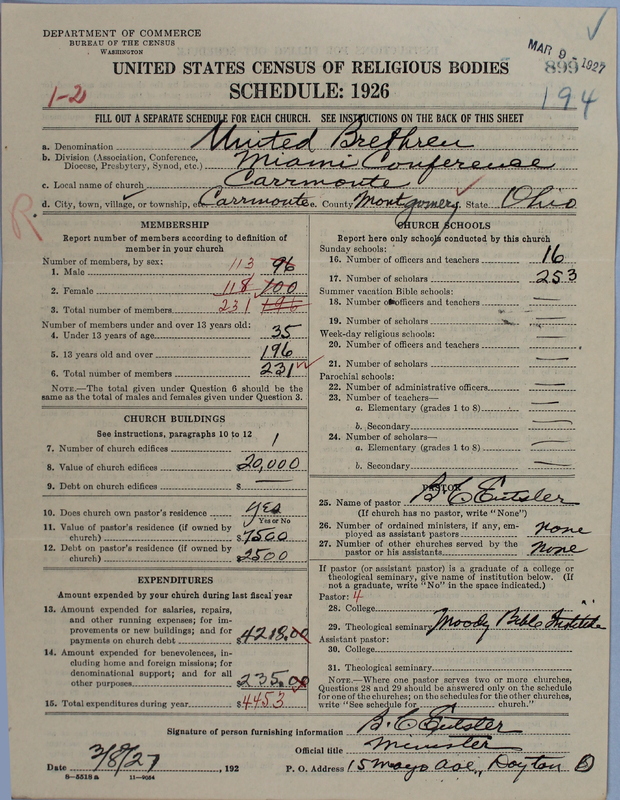 DEPARTMENT OF COMMERCE
BUREAU OF THE CENSUS
WASHINGTON
MAR 9 - 1927
899
194
1-2
UNITED STATES CENSUS OF RELIGIOUS BODIES
SCHEDULE: 1926
FILL OUT A SEPARATE SCHEDULE FOR EACH CHURCH. SEE INSTRUCTIONS ON THE BACK OF THIS SHEET
a. Denomination United Brethren
b. Division (Association, Conference, Diocese, Presbytery, Synod, etc.) Miami Conference
c. Local name of church Carrmonte
d. City, town, village, or township, etc. Carrmonte e. County Montgomery State Ohio
R
MEMBERSHIP
Report number of members according to definition of
member in your church
Number of members, by sex:
1. Male 113 96
2. Female 118 100
3. Total number of members 231 196
Number of members under and over 13 years old:
4. Under 13 years of age 35
5. 13 years old and over 196
6. Total number of members 231
NOTE.—The total given under Question 6 should be the
same as the total of males and females given under Question 3.
CHURCH BUILDINGS
See instructions, paragraphs 10 to 12
7. Number of church edifices 1
8. Value of church edifices $20,000
9. Debt on church edifices $ —
10. Does church own pastor's residence yes
Yes or No
11. Value of pastor's residence (if owned by
church) $7500
12. Debt on pastor's residence (if owned by
church) $2500
EXPENDITURES
Amount expended by your church during last fiscal year
13. Amount expended for salaries, repairs,
and other running expenses; for im-
provements or new buildings; and for
payments on church debt $4218.00
14. Amount expended for benevolences, in-
cluding home and foreign missions; for
denominational support; and for all
other purposes $235.00
15. Total expenditures during year $4453
CHURCH SCHOOLS
Report here only schools conducted by this church
Sunday schools:
16. Number of officers and teachers 16
17. Number of scholars 253
Summer vacation Bible schools:
18. Number of officers and teachers —
19. Number of scholars —
Week-day religious schools:
20. Number of officers and teachers —
21. Number of scholars —
Parochial schools:
22. Number of administrative officers —
23. Number of teachers—
a. Elementary (grades 1 to 8) —
b. Secondary —
24. Number of scholars—
a. Elementary (grades 1 to 8) —
b. Secondary —
PASTOR
25. Name of pastor B. C. Eutsler
(If church has no pastor, write "None")
26. Number of ordained ministers, if any, em-
ployed as assistant pastors none
27. Number of other churches served by the
pastor or his assistants none
If pastor (or assistant pastor) is a graduate of a college or
theological seminary, give name of institution below. (If
not a graduate, write "No" in the space indicated.)
Pastor: 4
28. College
29. Theological seminary Moody Bible Institute
Assistant pastor:
30. College
31. Theological seminary
NOTE.—Where one pastor serves two or more churches,
Questions 28 and 29 should be answered only on the schedule
for one of the churches; on the schedules for the other churches,
write "See schedule for church."
Signature of person furnishing information B. C. Eutsler
Official title Minister
Date 3/8/27, 192 P. O. Address 15 Mayo Ave, Dayton O
8-5518a 11-9054